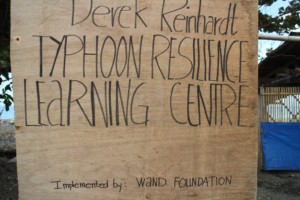 Derek Reinhardt
TYPHOON RESILIENCE
LEARNING CENTRE
Implemented by: WAND FOUNDATION